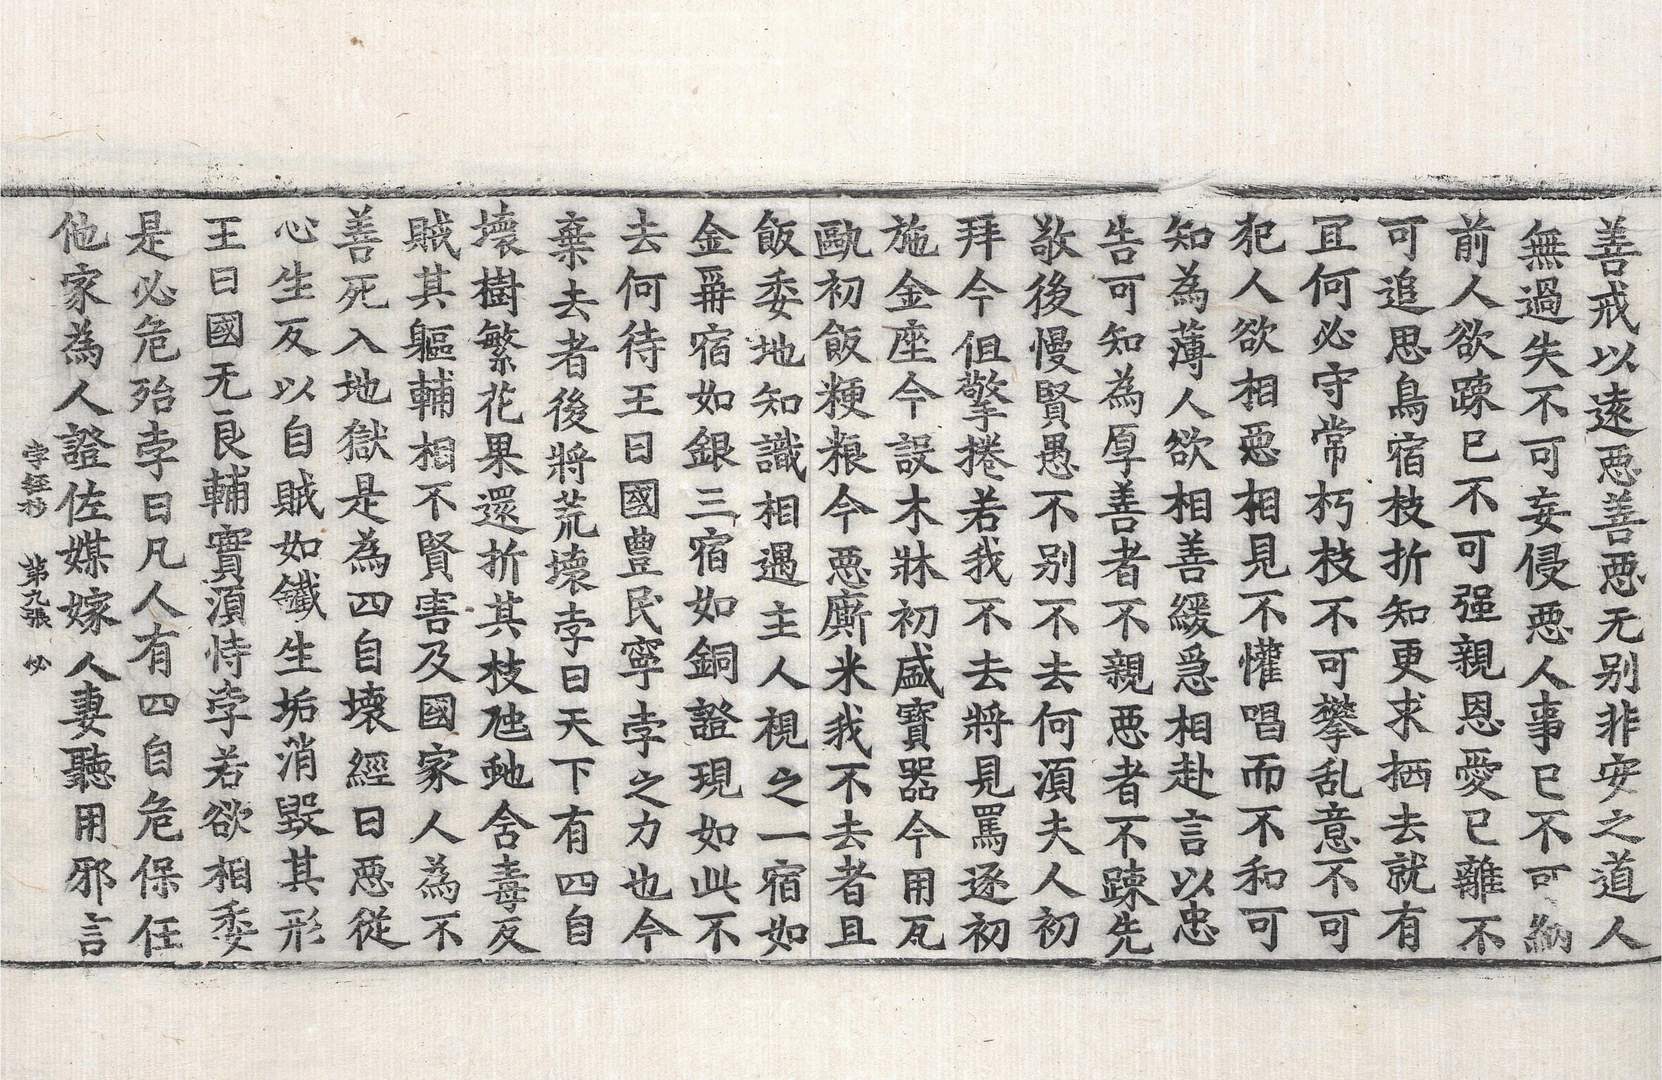 善戒以遠惡善惡无别非安之道人
無過失不可妄侵惡人事已不可納
前人欲踈已不可强親恩愛已離不
可追思鳥宿枝折知更求栖去就有
冝何必守常朽枝不可攀乱意不可
犯人欲相惡相見不懽唱而不和可
知為薄人欲相善緩急相赴言以忠
告可知為厚善者不親惡者不踈先
敬後慢賢愚不别不去何湏夫人初
拜今但擎捲若我不去將見罵逐初
施金座今設木牀初盛寶器今用瓦
甌初飯粳粮今惡廝米我不去者且
飯委地知識相遇主人視之一宿如
金再宿如銀三宿如銅證現如此不
去何待王曰國豊民寧孛之力也今
棄去者後將荒壞孛曰天下有四自
壞樹繁花果還折其枝虺虵含毒反
賊其軀輔相不賢害及國家人為不
善死入地獄是為四自壞經曰惡從
心生反以自賊如鐵生垢消毀其形
王曰國无良輔實湏恃孛若欲相委
是必危殆孛曰凡人有四自危保任
他家為人證佐媒嫁人妻聽用邪言
孛經抄 第九張 必